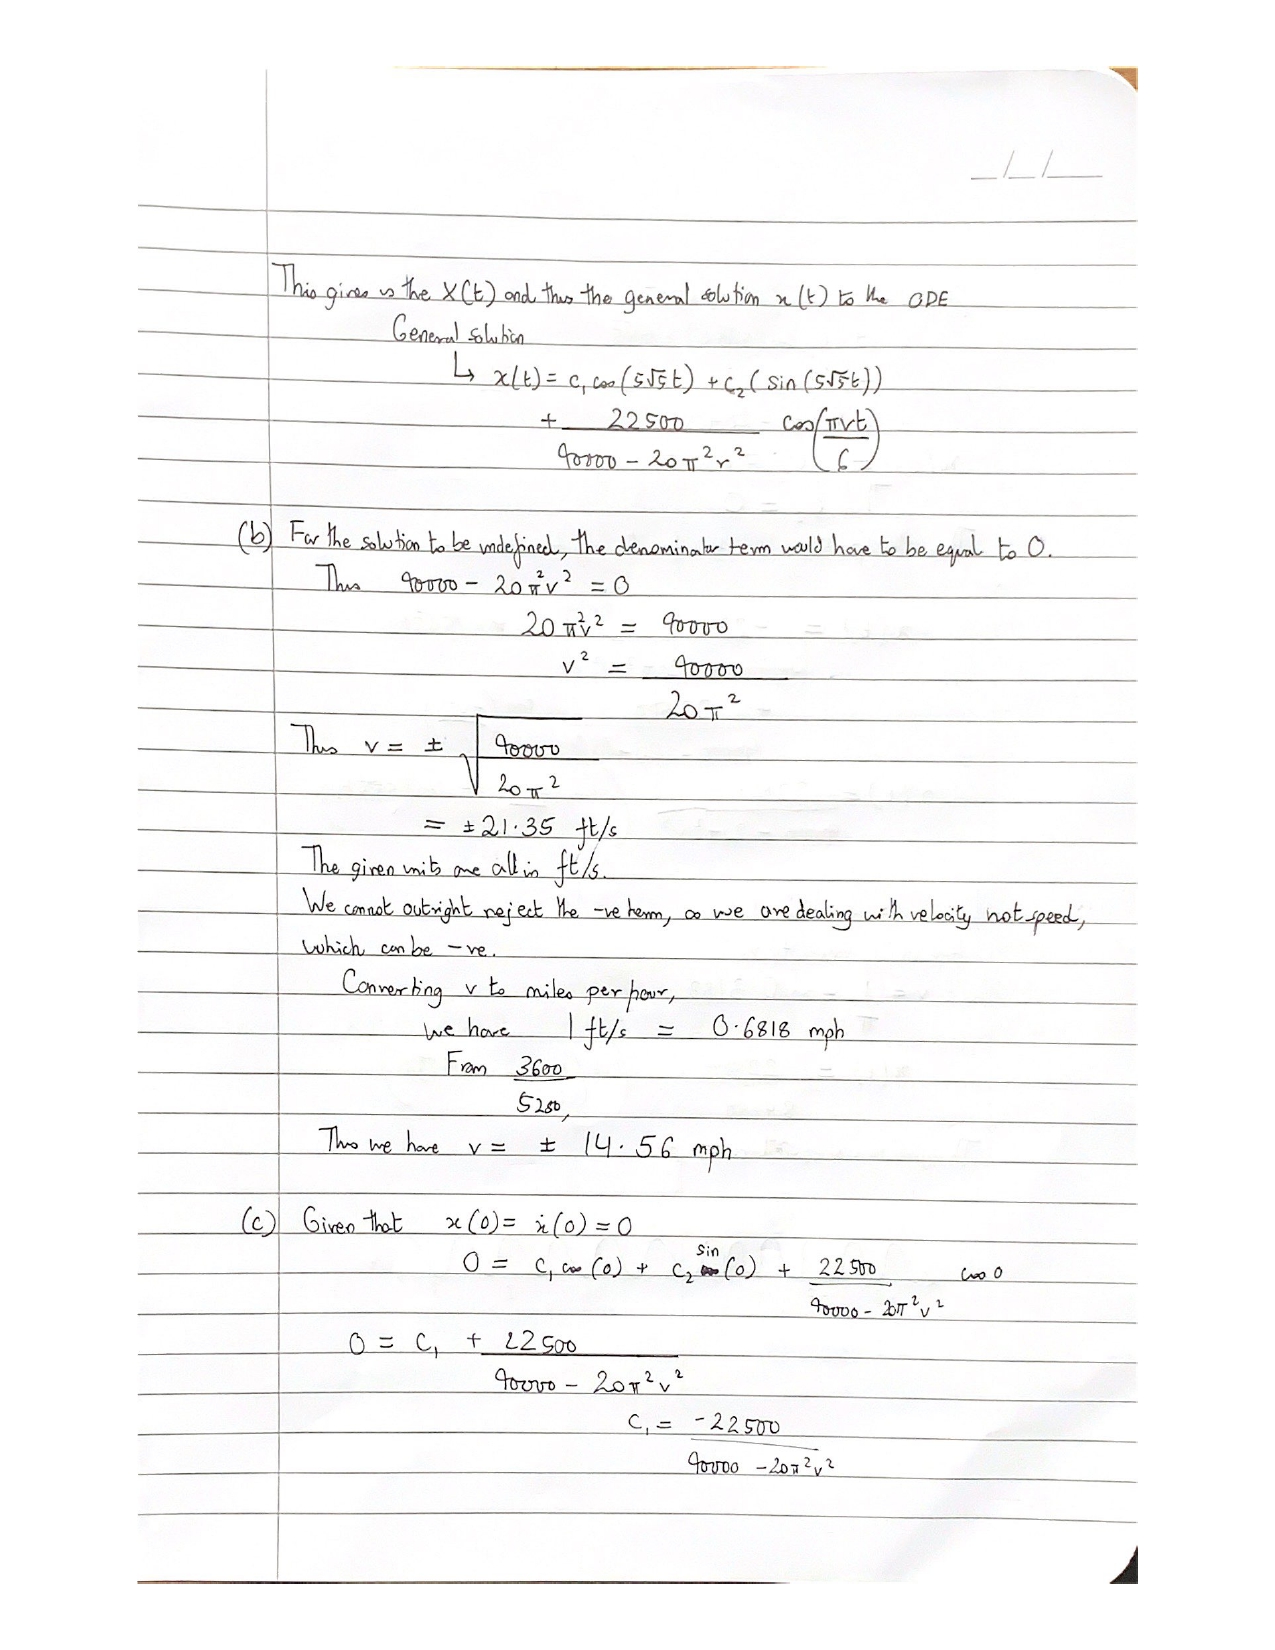 _/_/__
This gives us the X(t) and thus the general solution x(t) to the ODE
General solution
↳ x(t) = c₁ cos(5√5t) + c₂ (sin(5√5t))
+ 22500/(90000 - 20π²v²) cos(πvt/6)
(b) For the solution to be undefined, the denominator term would have to be equal to 0.
Thus 90000 - 20π²v² = 0
20π²v² = 90000
v² = 90000/20π²
Thus v = ± √(90000/20π²)
= ±21.35 ft/s
The given units are all in ft/s.
We cannot outright reject the -ve term, as we are dealing with velocity not speed,
which can be -ve.
Converting v to miles per hour,
we have 1 ft/s = 0.6818 mph
From 3600/5280,
Thus we have v = ± 14.56 mph
(c) Given that x(0) = ẋ(0) = 0
0 = c₁ cos(0) + c₂ sin(0) + 22500/(90000 - 20π²v²) cos 0
0 = c₁ + 22500/(90000 - 20π²v²)
c₁ = -22500/(90000 - 20π²v²)